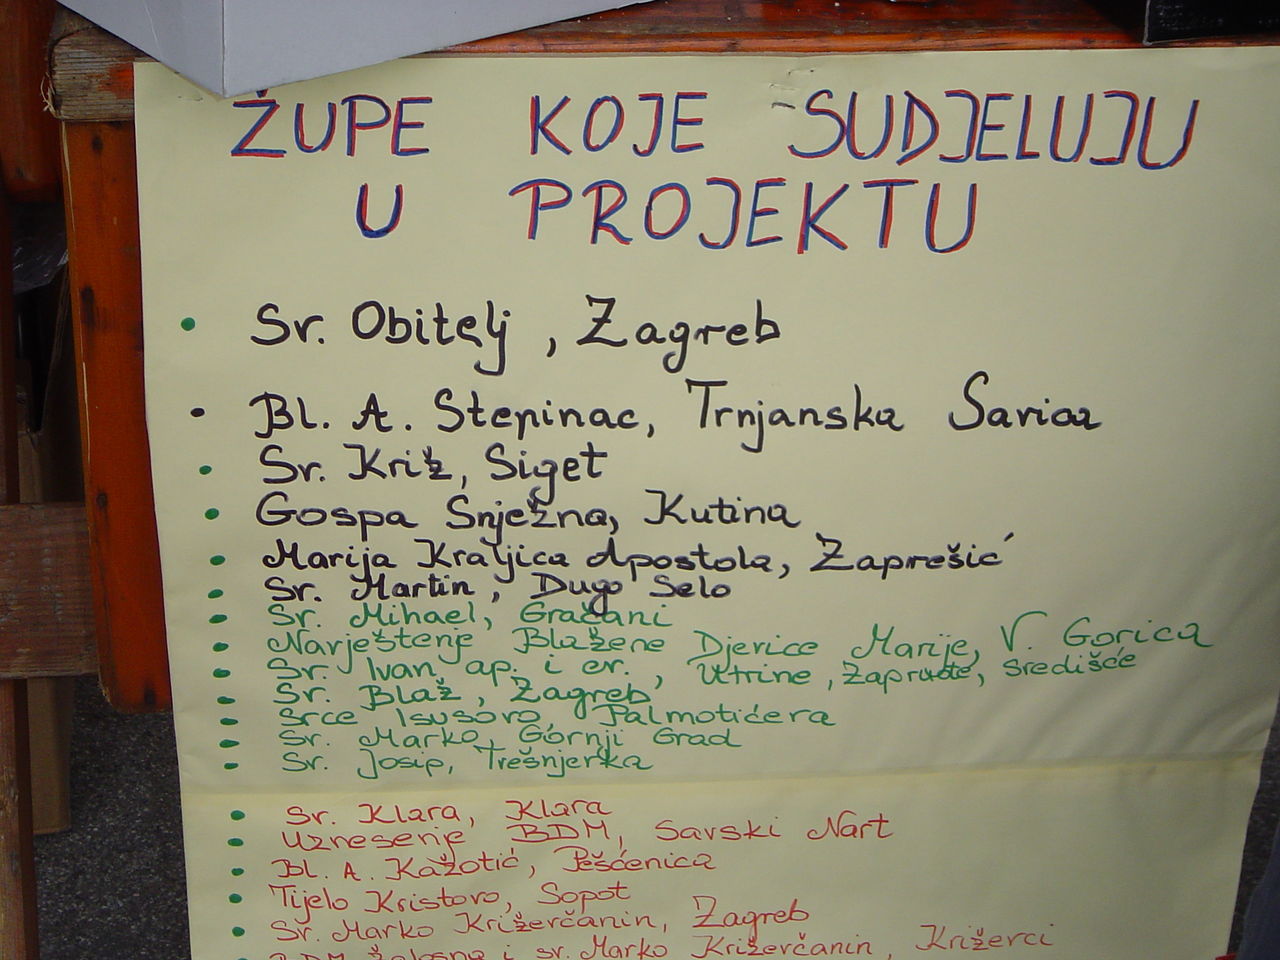 ŽUPE KOJE SUDJELUJU
U PROJEKTU
• Sv. Obitelj, Zagreb
• Bl. A. Stepinac, Trnjanska Savica
• Sv. Križ, Siget
• Gospa Snježna, Kutina
• Marija Kraljica Apostola, Zaprešić
• Sv. Martin, Dugo Selo
• Sv. Mihael, Gračani
• Navještenje Blažene Djevice Marije, V. Gorica
• Sv. Ivan ap. i ev., Utrine, Zapruđe, Središće
• Sv. Blaž, Zagreb
• Srce Isusovo, Palmotićeva
• Sv. Marko, Gornji Grad
• Sv. Josip, Trešnjevka
• Sv. Klara, Klara
• Uznesenje BDM, Savski Nart
• Bl. A. Kažotić, Pešćenica
• Tijelo Kristovo, Sopot
• Sv. Marko Križevčanin, Zagreb
• BDM Žalosna i sv. Marko Križevčanin, Križevci